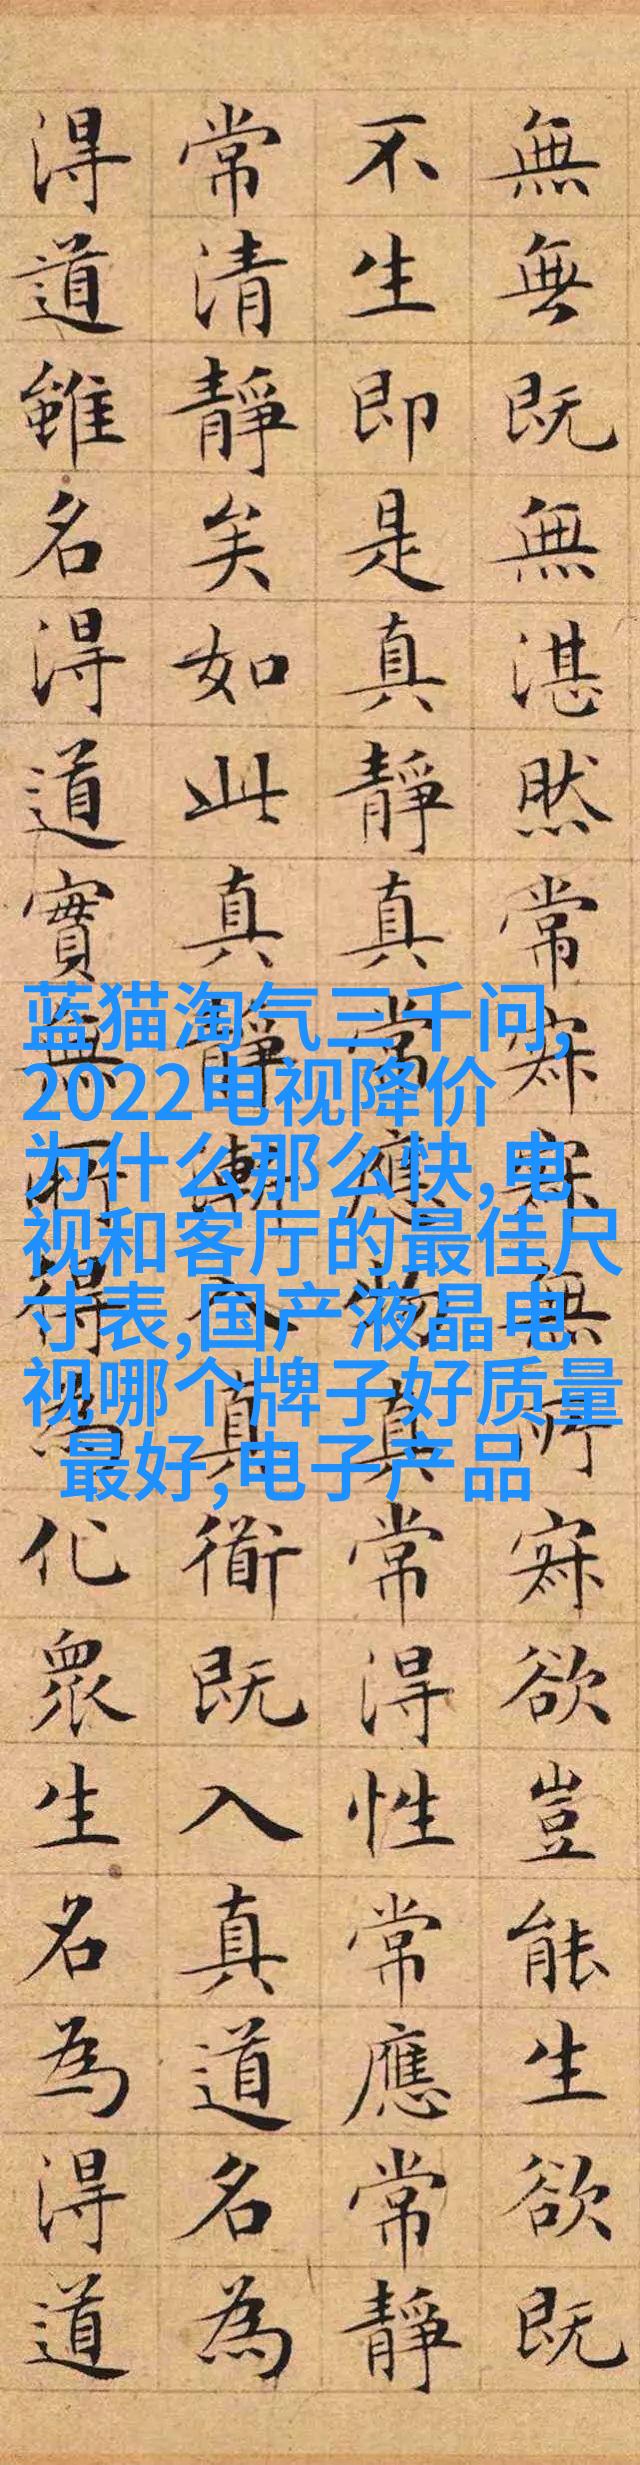 無無既無湛然常寂寂無所寂欲豈能生欲既
不生即是真靜真常應物真常得性常應常靜
常清靜矣如此真靜漸入真衟既入真道名為
得道雖名得道實無所得為化眾生名為得道
蓝猫淘气三千问,
2022电视降价
为什么那么快,电
视和客厅的最佳尺
寸表,国产液晶电
视哪个牌子好质量
最好,电子产品